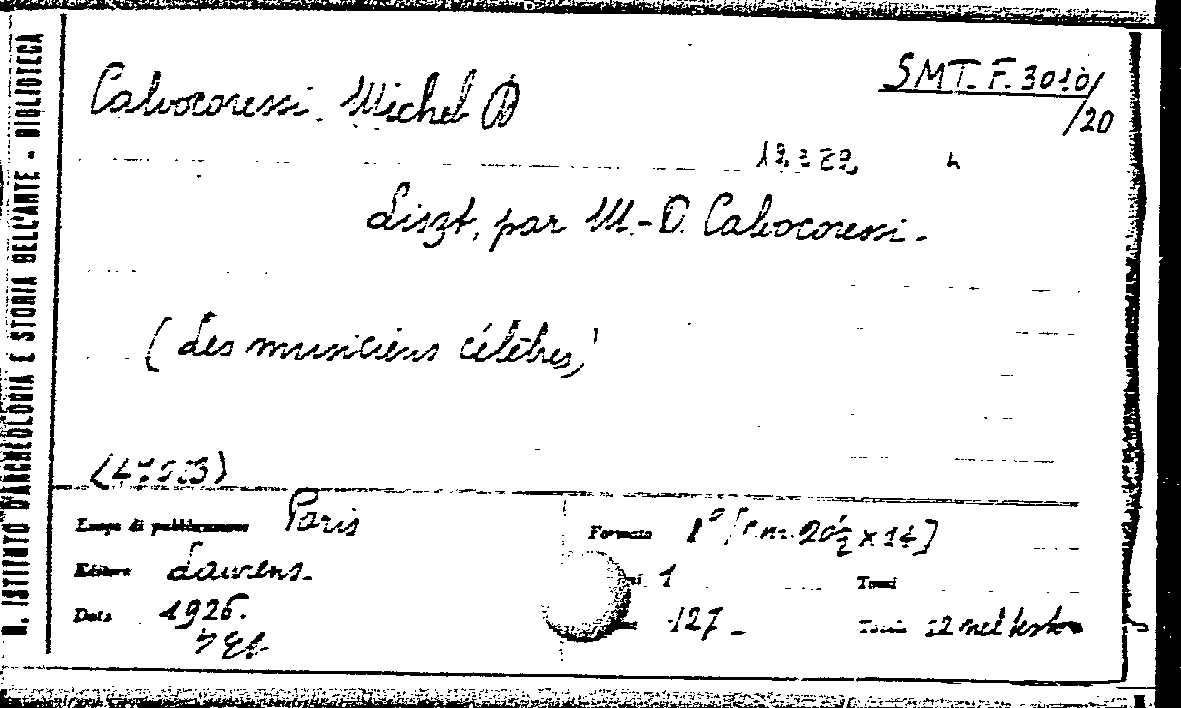 R. ISTITUTO D'ARCHEOLOGIA E STORIA DELL'ARTE - BIBLIOTECA
SMT. F. 3010/
/20
Calvocoressi. Michel D
Liszt, par M.-D. Calvocoressi.
(Les musiciens célèbres)
Luogo di pubblicazione Paris
Formato 8° [cm. 20½ x 14]
Editore Laurens.
1
Tomi
Data 1926.
127
12 nel testo